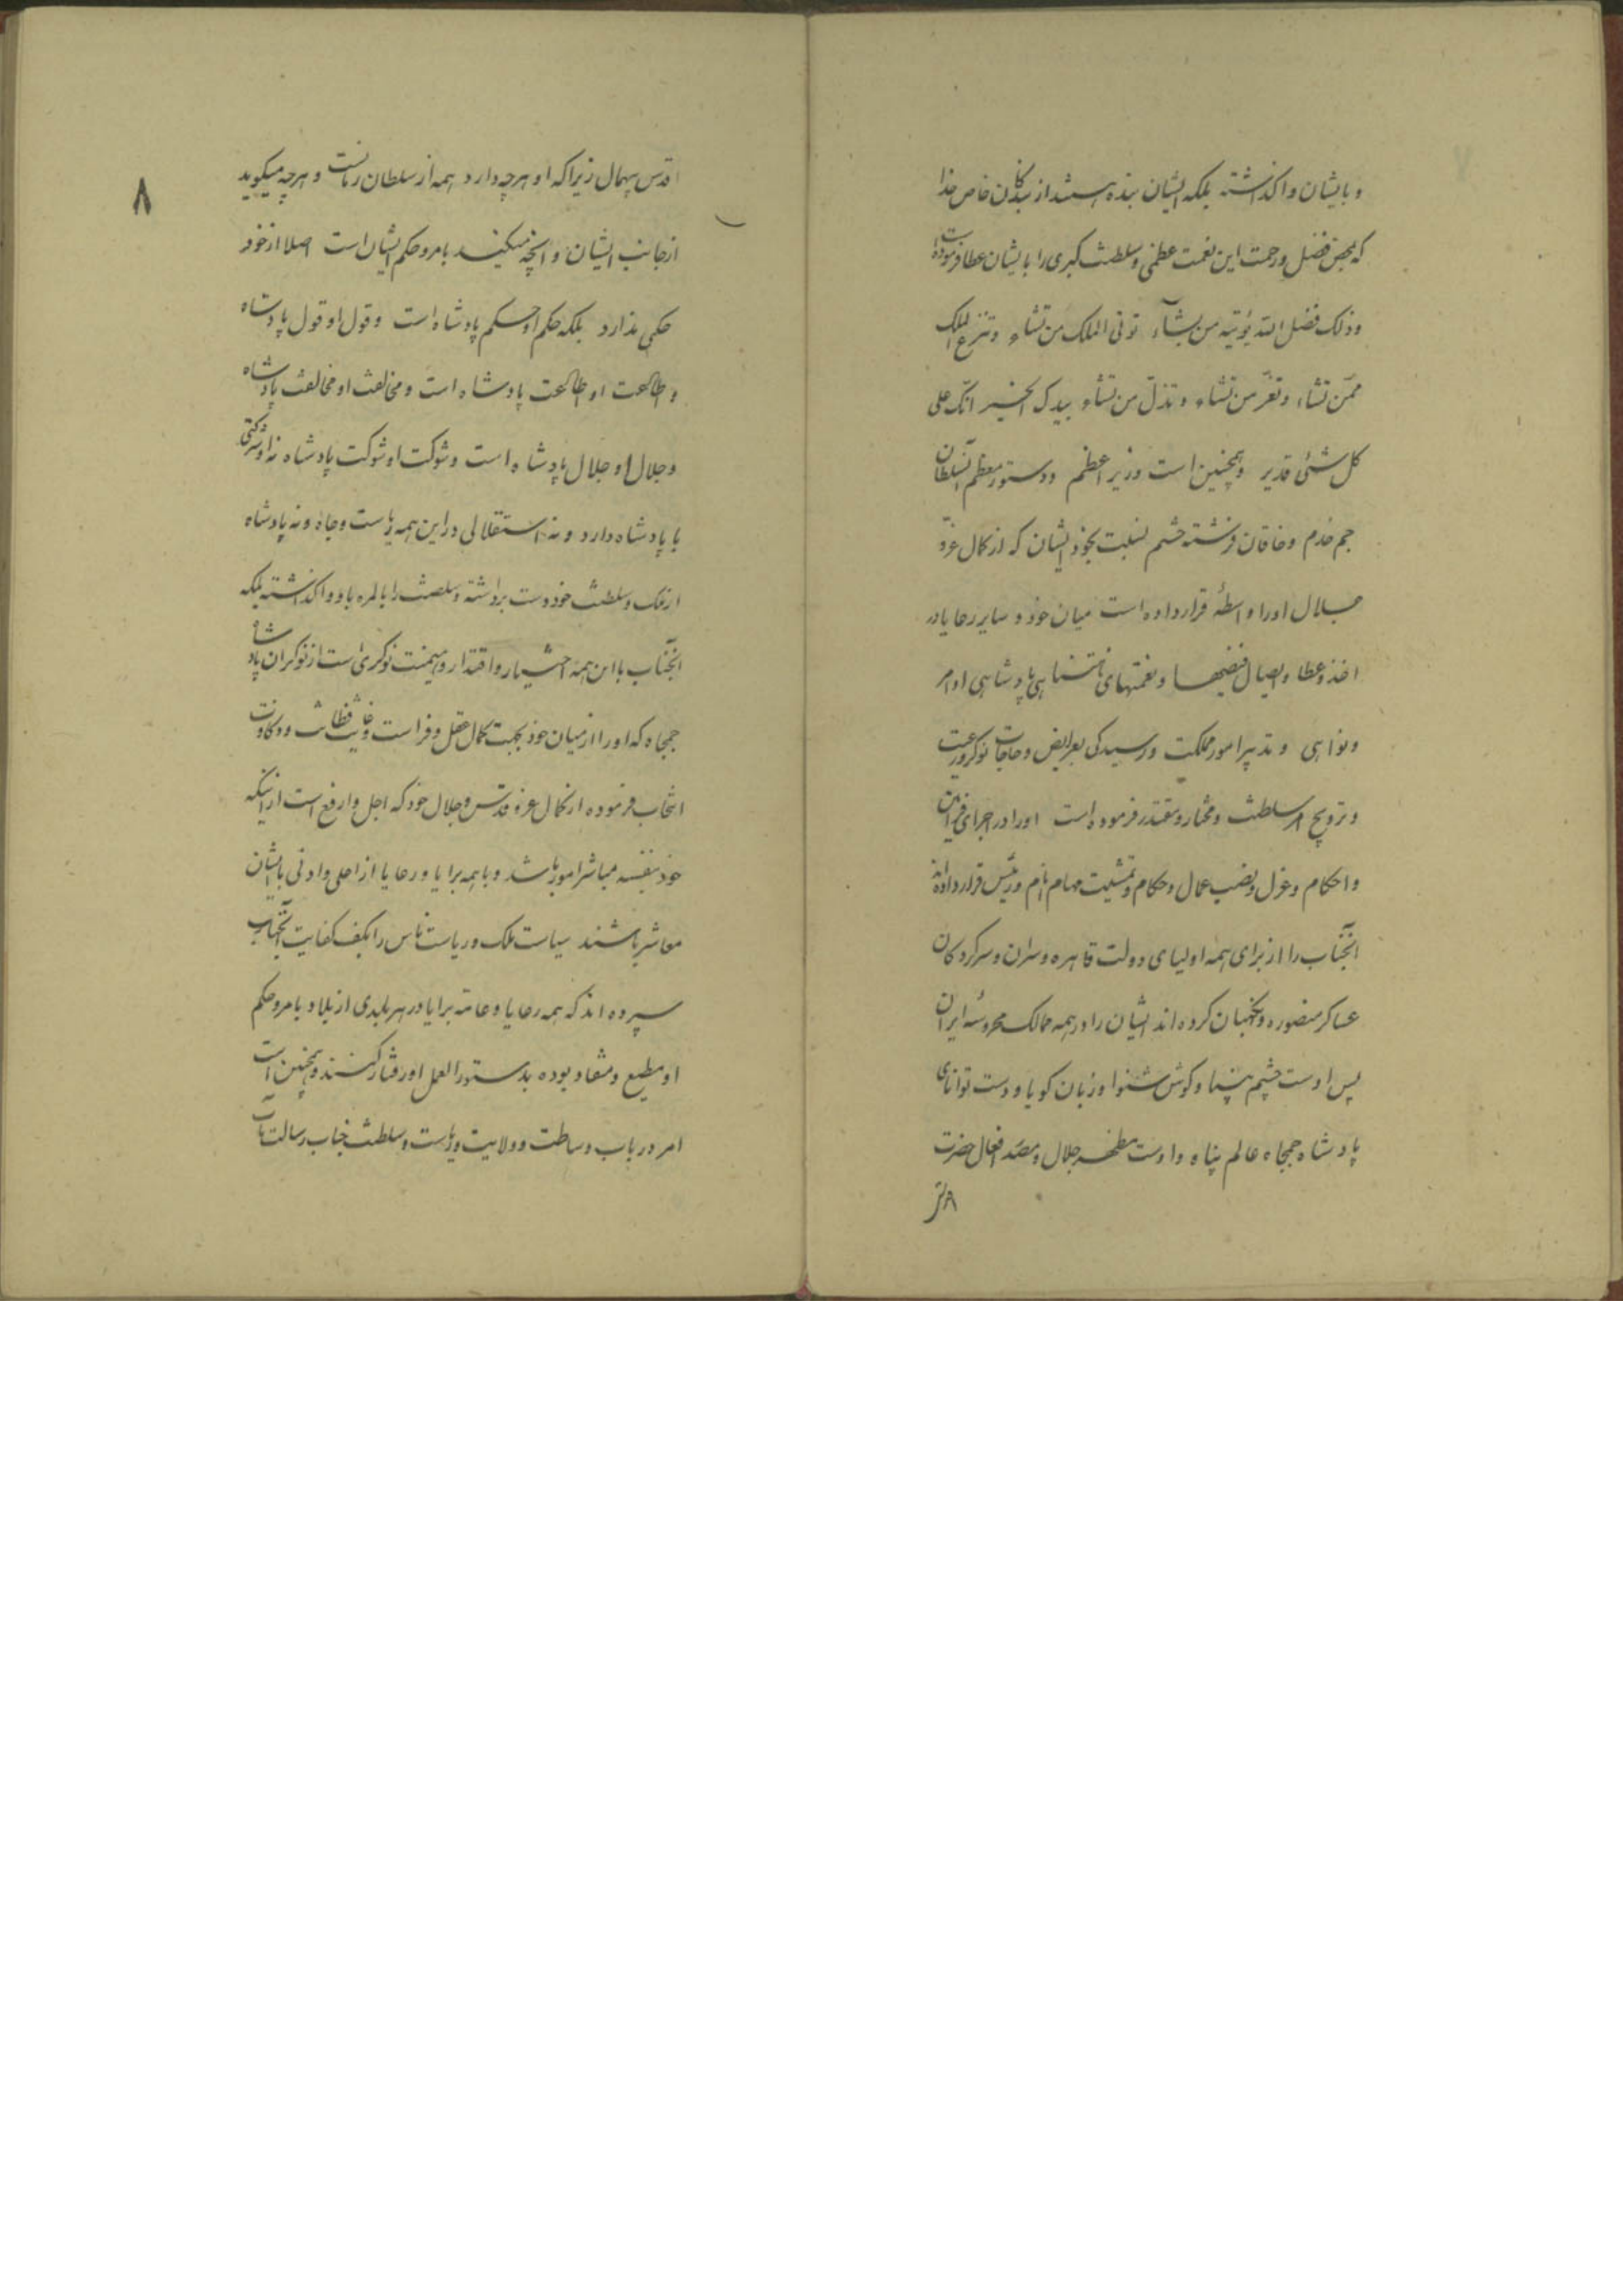 و بایشان واکذاشته بلکه ایشان بنده هستند از بندکان خاص خدا
که بمحض فضل و رحمت این نعمت عظمی و سلطنت کبری را بایشان عطا فرموده است
وذلک فضل الله یؤتیه من یشآء توتی الملک من تشاء وتنزع الملک
ممّن تشاء وتعزّ من تشاء وتذلّ من تشاء بیدک الخیر انّک علی
کل شئی قدیر و همچنین است وزیر اعظم و دستور معظم السلطان
جم خدم و خاقان فرشته حشم نسبت بخود ایشان که از کمال عزّ و
جلال او را واسطهٔ قرار داده است میان خود و سایر رعایا در
اخذ و عطا و ایصال فیضها و نعمتهای نامتناهی پادشاهی و اوامر
و نواهی و تدبیر امور مملکت و رسیدکی بعرایض و حاجات نوکر و رعیت
و ترویج امر سلطنت و مختار و مقتدر فرموده است او را در اجرای فرامین
و احکام و عزل و نصب عمال و حکام و تمشیت مهام انام و رئیس قرار داده‌اند
آنجناب را از برای همه اولیای دولت قاهره و سران و سرکردکان
عساکر منصوره و نکهبان کرده‌اند ایشان را در همه ممالک محروسهٔ ایران
پس اوست چشم بینا و کوش شنوا و زبان کویا و دست توانای
پادشاه جمجاه عالم پناه و اوست مظهر جلال و مصدر افعال حضرت
۸
اقدس بیهمال زیرا که او هرچه دارد همه از سلطان زمانست و هرچه میکوید
از جانب ایشان و آنچه میکند بامر و حکم ایشان است اصلا از خود
حکمی ندارد بلکه حکم او حکم پادشاه است و قول او قول پادشاه
و اطاعت او اطاعت پادشاه است و مخالفت او مخالفت پادشاه
و جلال او جلال پادشاه است و شوکت او شوکت پادشاه نه او شرکتی
با پادشاه دارد و نه استقلالی در این همه ریاست و جاه و نه پادشاه
از ملک و سلطنت خود دست برداشته و سلطنت را بالمره باو واکذاشته بلکه
آنجناب با این همه اختیار و اقتدار و هیمنت نوکری است از نوکران پادشاه
جمجاه که او را از میان خود بجهت کمال عقل و فراست و غایت فطانت و ذکاوت
انتخاب فرموده از کمال عز و قدس و جلال خود که اجل و ارفع است از اینکه
خود بنفسه مباشر امور باشد و با همه برایا و رعایا از اعلی و ادنی بالشان
معاشر باشند سیاست ملک و ریاست ناس را بکف کفایت آنجناب
سپرده‌اند که همه رعایا و عامه برایا در هر بلدی از بلاد بامر و حکم
او مطیع و منقاد بوده بدستور العمل او رفتار کنند و همچنین است
امر در باب وساطت و ولایت و ریاست و سلطنت جناب رسالت مآب